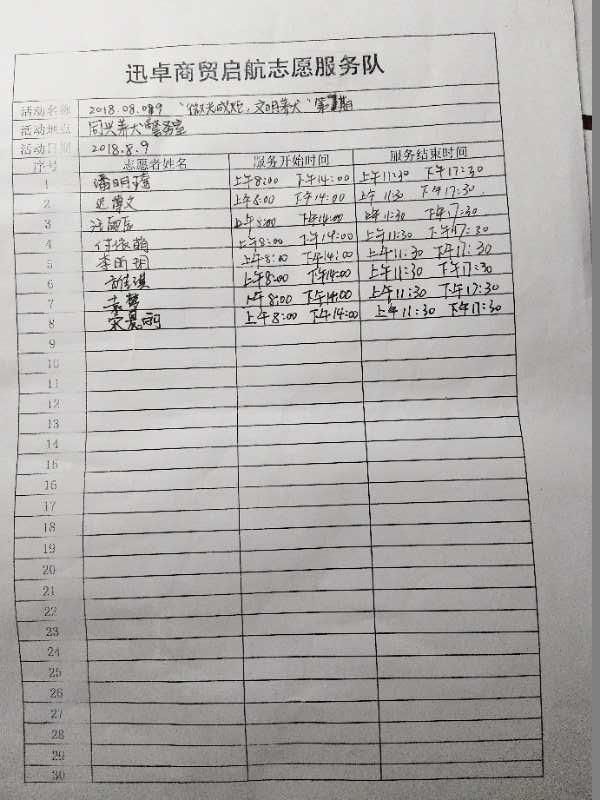 迅卓商贸启航志愿服务队
活动名称 2018.08.09 "微光成炬，文明养犬"第1期
活动地点 同兴养犬警务室
活动日期 2018.8.9
序号 志愿者姓名 服务开始时间 服务结束时间
1 潘明 上午8:00 下午14:00 上午11:30 下午17:30
2 迟博文 上午8:00 下午14:00 上午11:30 下午17:30
3 上午8:00 下午14:00 上午11:30 下午17:30
4 付依萌 上午8:00 下午14:00 上午11:30 下午17:30
5 李雨玥 上午8:00 下午14:00 上午11:30 下午17:30
6 上午8:00 下午14:00 上午11:30 下午17:30
7 上午8:00 下午14:00 上午11:30 下午17:30
8 宋晨雨 上午8:00 下午14:00 上午11:30 下午17:30
9
10
11
12
13
14
15
16
17
18
19
20
21
22
23
24
25
26
27
28
29
30